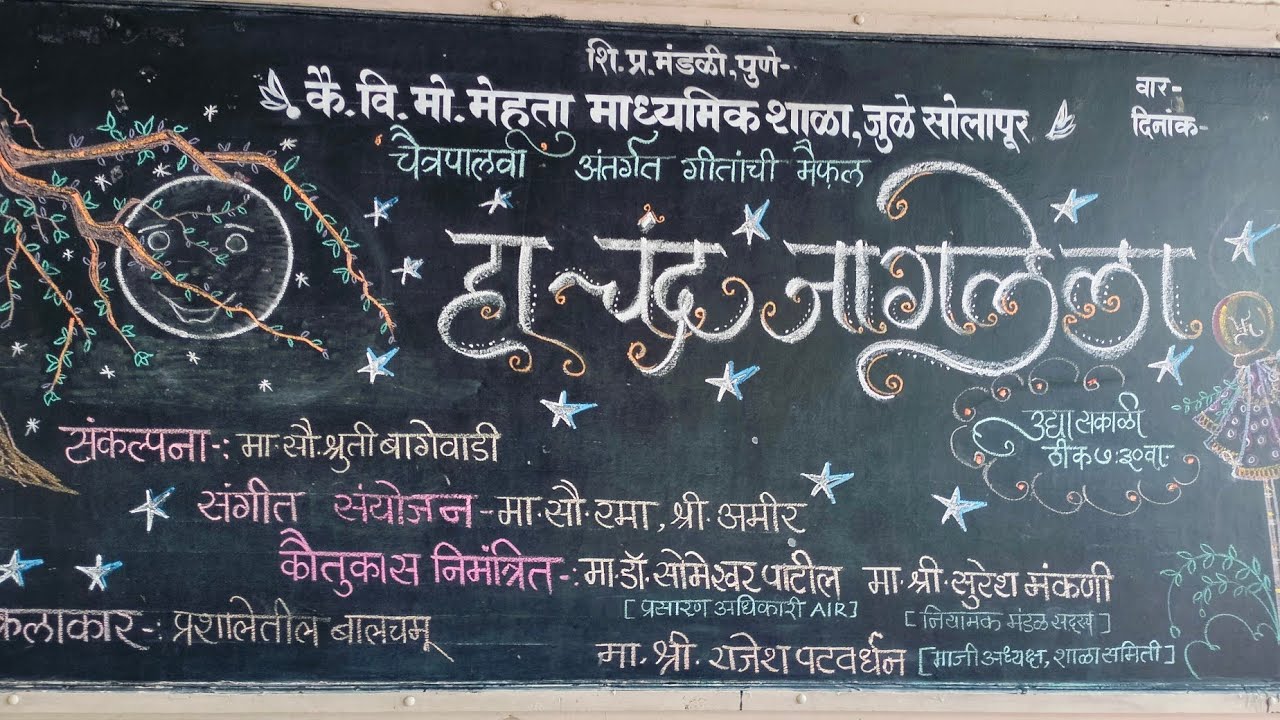 शि.प्र.मंडळी,पुणे-
कै.वि.मो.मेहता माध्यमिक शाळा,जुळे सोलापूर
वार-
दिनांक-
चैत्रपालवी अंतर्गत गीतांची मैफ़ल
हा चंद्र जागलेला
उद्या सकाळी
ठीक ७:३०वा.
संकल्पना-: मा.सौ.श्रुती बागेवाडी
संगीत संयोजन-मा.सौ.रमा, श्री.अमीर
कौतुकास निमंत्रित-: मा.डॉ.सोमेश्वर पाटील मा.श्री.सुरेश मंकणी
[प्रसारण अधिकारी AIR] [नियामक मंडळ सदस्य]
कलाकार-: प्रशालेतील बालचमू
मा.श्री.राजेश पटवर्धन [माजी अध्यक्ष,शाळा समिती]